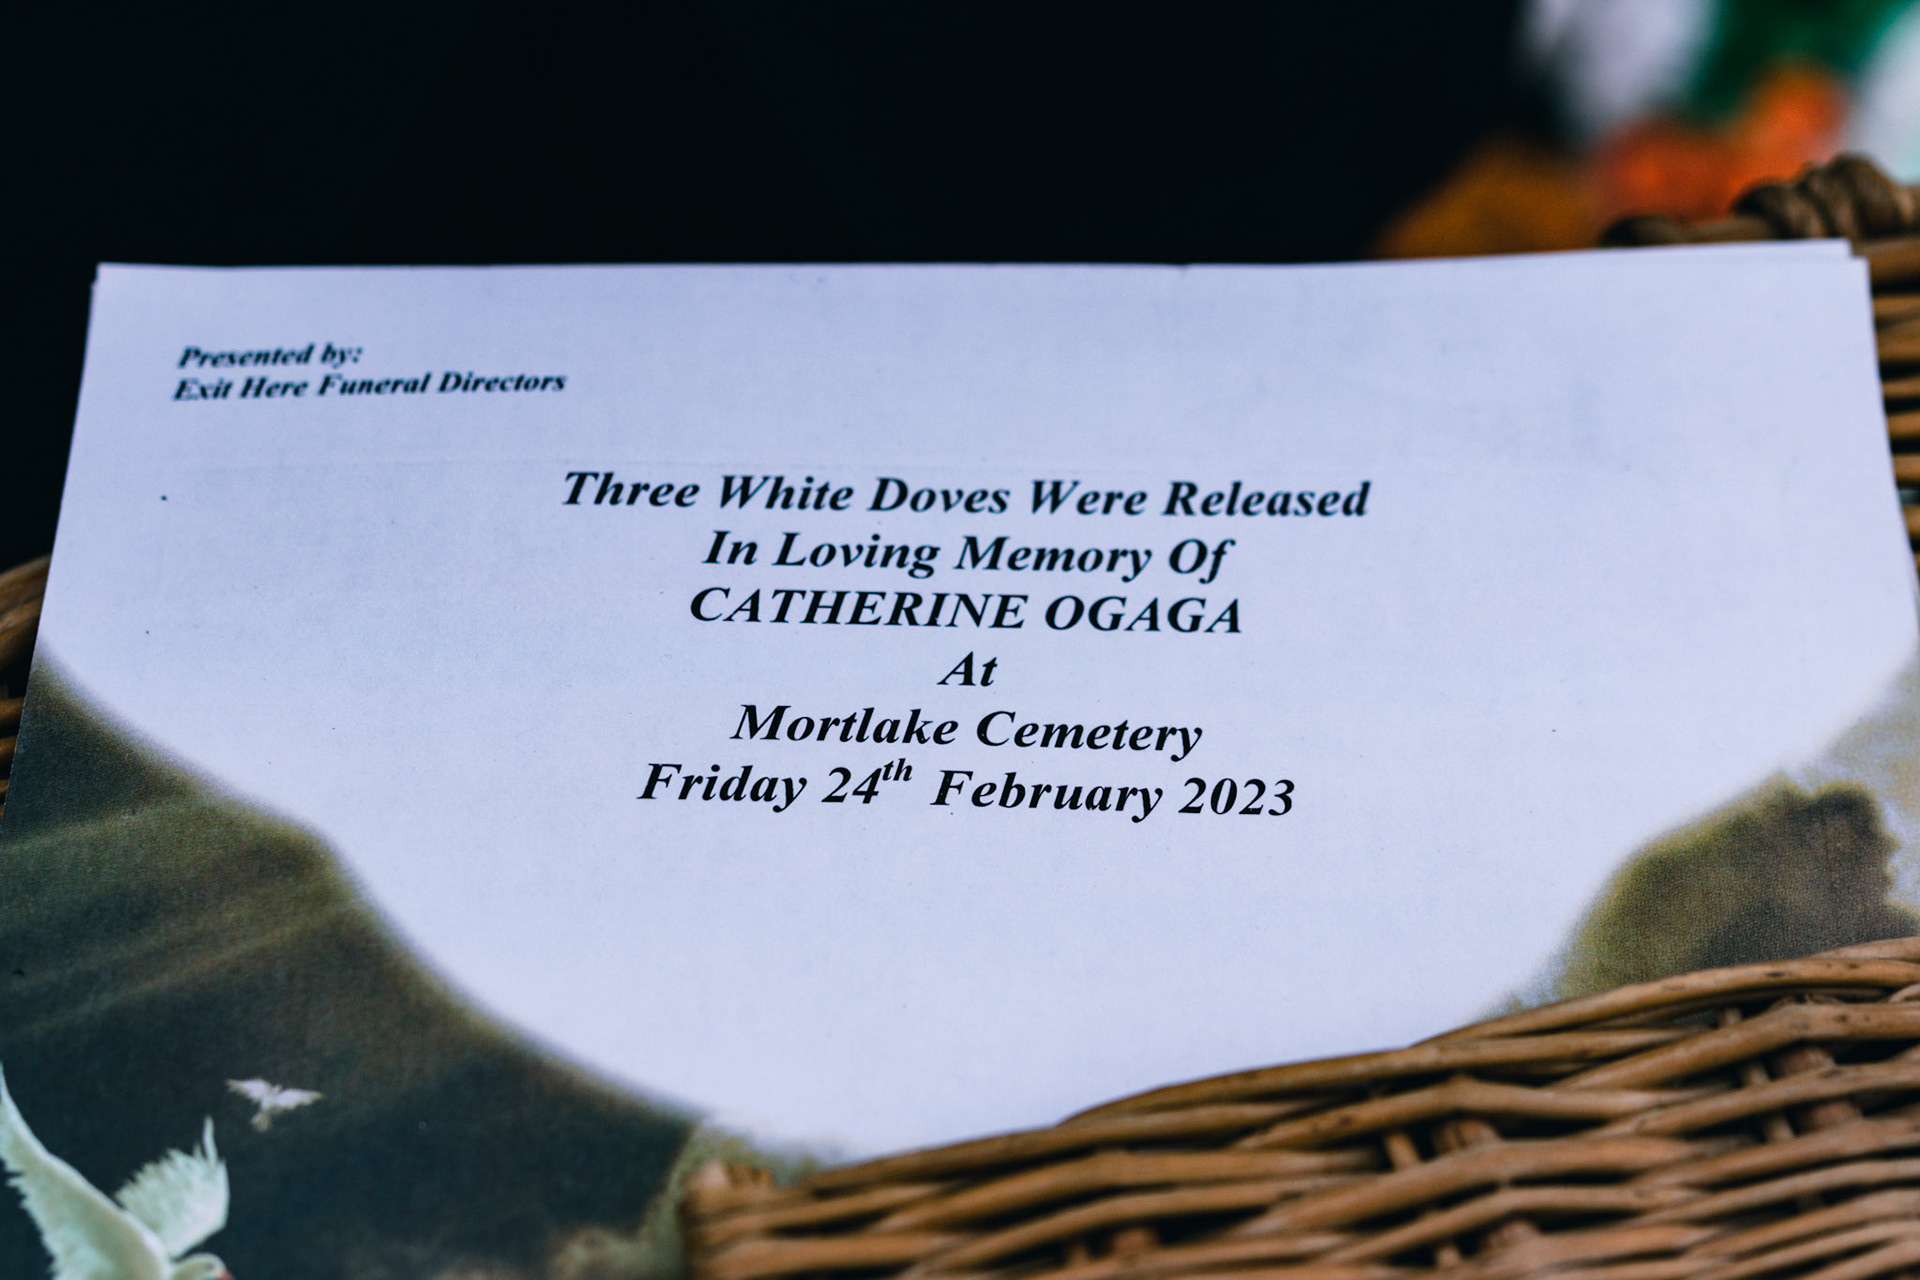 Presented by:
Exit Here Funeral Directors
Three White Doves Were Released
In Loving Memory Of
CATHERINE OGAGA
At
Mortlake Cemetery
Friday 24th February 2023